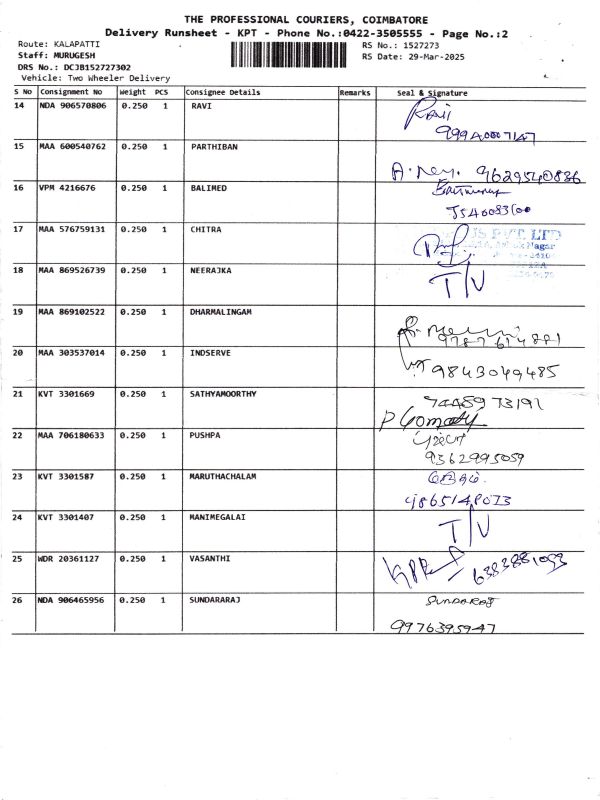 THE PROFESSIONAL COURIERS, COIMBATORE
Delivery Runsheet - KPT - Phone No.:0422-3505555 - Page No.:2
Route: KALAPATTI
RS No.: 1527273
Staff: MURUGESH
RS Date: 29-Mar-2025
DRS No.: DCJB152727302
Vehicle: Two Wheeler Delivery
S No Consignment No Weight PCS Consignee Details Remarks Seal & Signature
14 NDA 906570806 0.250 1 RAVI Ravi
15 MAA 600540762 0.250 1 PARTHIBAN
9629540836
16 VPM 4216676 0.250 1 BALIMED
17 MAA 576759131 0.250 1 CHITRA
PVT. LTD
18 MAA 869526739 0.250 1 NEERAJKA T/V
19 MAA 869102522 0.250 1 DHARMALINGAM
20 MAA 303537014 0.250 1 INDSERVE
9843049485
21 KVT 3301669 0.250 1 SATHYAMOORTHY
P Gomathy
22 MAA 706180633 0.250 1 PUSHPA
9362995059
23 KVT 3301587 0.250 1 MARUTHACHALAM
24 KVT 3301407 0.250 1 MANIMEGALAI T/V
25 WDR 20361127 0.250 1 VASANTHI
6383881093
26 NDA 906465956 0.250 1 SUNDARARAJ SUNDARAJ
9976395947